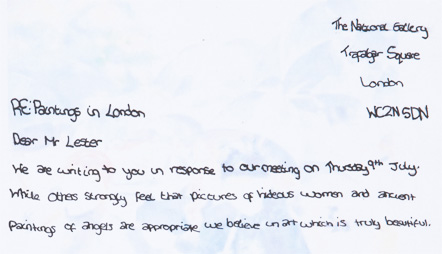 The National Gallery
Trafalgar Square
London
WC2N 5DN
RE: Paintings in London
Dear Mr Lester
We are writing to you in response to our meeting on Thursday 9th July.
While others strongly feel that pictures of hideous women and ancient
paintings of angels are appropriate we believe in art which is truly beautiful.